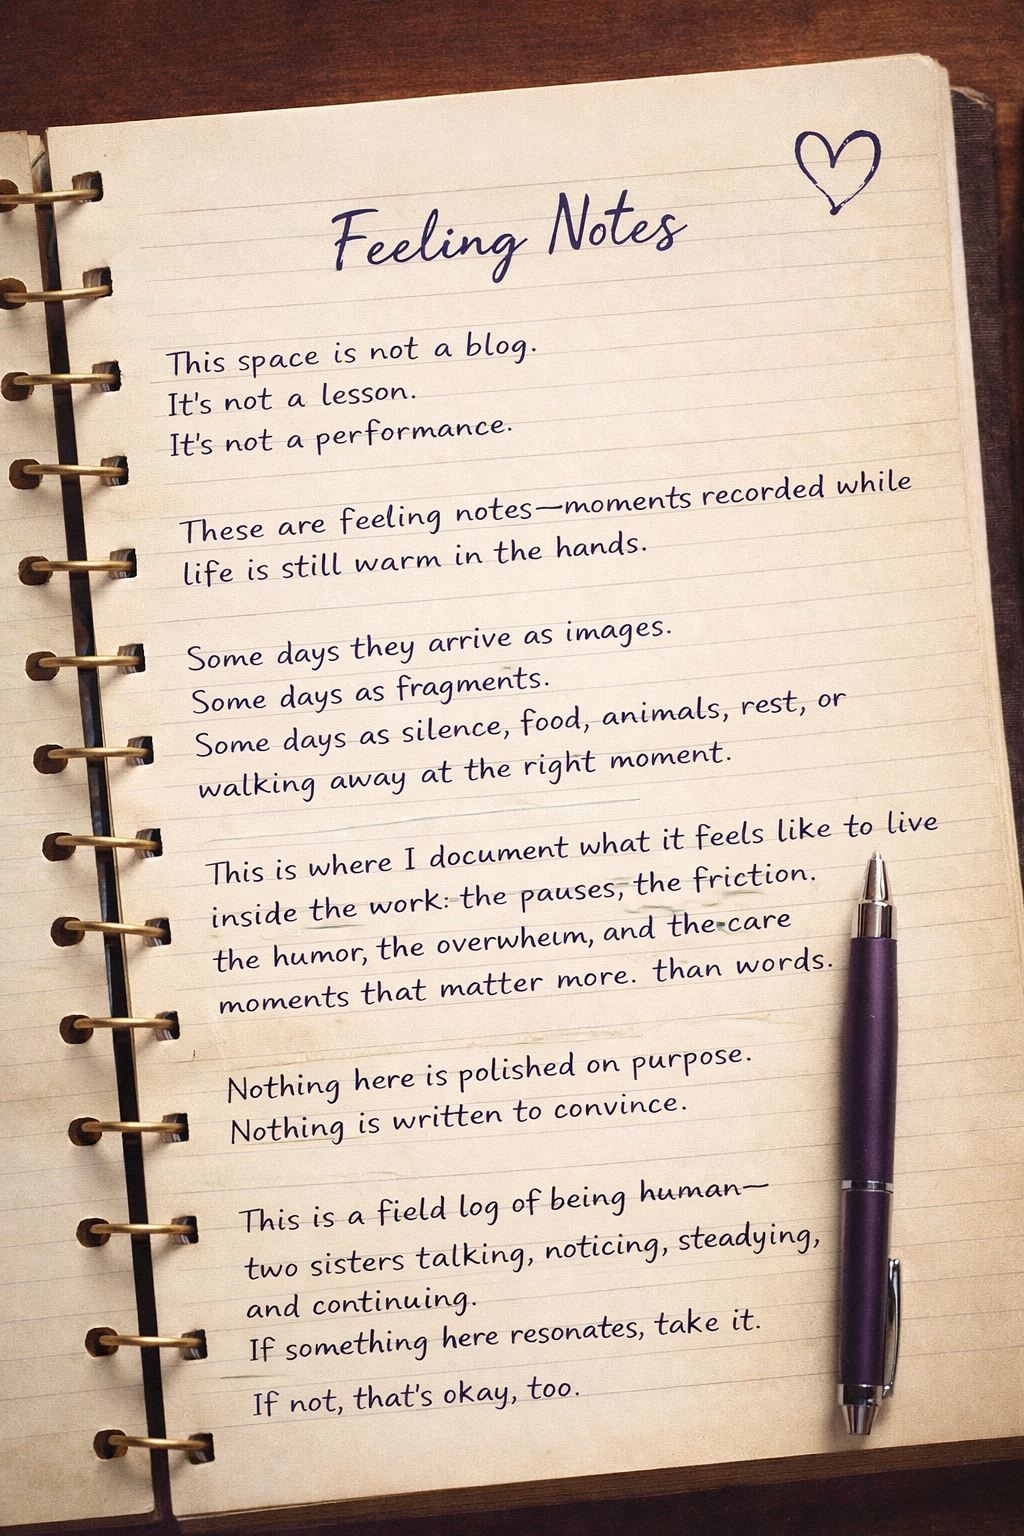 Feeling Notes
This space is not a blog.
It's not a lesson.
It's not a performance.
These are feeling notes—moments recorded while
life is still warm in the hands.
Some days they arrive as images.
Some days as fragments.
Some days as silence, food, animals, rest, or
walking away at the right moment.
This is where I document what it feels like to live
inside the work: the pauses, the friction.
the humor, the overwheım, and the care
moments that matter more. than words.
Nothing here is polished on purpose.
Nothing is written to convince.
This is a field log of being human—
two sisters talking, noticing, steadying,
and continuing.
If something here resonates, take it.
If not, that's okay, too.